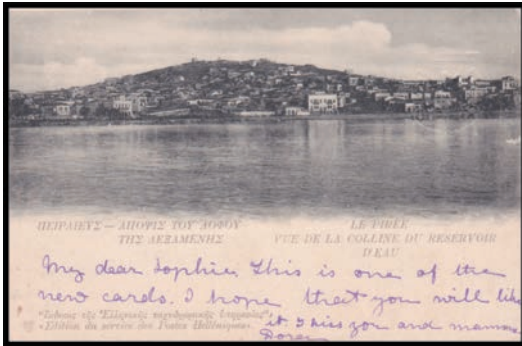 ΠΕΙΡΑΙΕΥΣ — ΑΠΟΨΙΣ ΤΟΥ ΛΟΦΟΥ
ΤΗΣ ΔΕΞΑΜΕΝΗΣ
LE PIRÉE
VUE DE LA COLLINE DU RESERVOIR
D'EAU
My dear Sophie. This is one of the
new cards. I hope that you will like
it. I miss you and mamma
"Ἔκδοσις τῆς Ἑλληνικῆς ταχυδρομικῆς ὑπηρεσίας"
«Edition du service des Postes Helléniques»